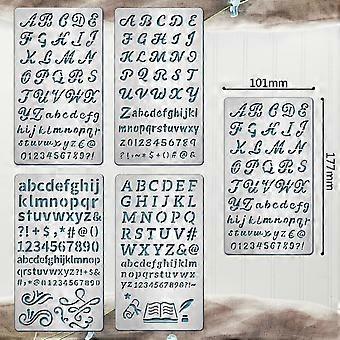 ABCDE
FGHIJ
KLMNO
OPQRS
TUVWX
YZabcdefg
hijklmnopqr
stuvwxyz&@
0123456789?!
ABCDE
FGHIJ
KLMNO
PQRST
UVWXY
Zabcdefghijkl
mnopqrstuvw
xyz0123456789
101mm
177mm
ABCDE
FGHIJ
KLMNO
OPQRS
TUVWX
YZabcdefg
hijklmnopqr
stuvwxyz&@
0123456789?!
abcdefghij
klmnopqr
stuvwxyz&
?!+$*#@()
1234567890
abcdefghijklmno
pqrstuvwxyz?!+$&
1234567890#@*()
ABCDEF
GHIJKL
MNOPQ
RSTUVW
XYZ&@()
abcdefghijklm
nopqrstuvwxyz
1234567890#*?!